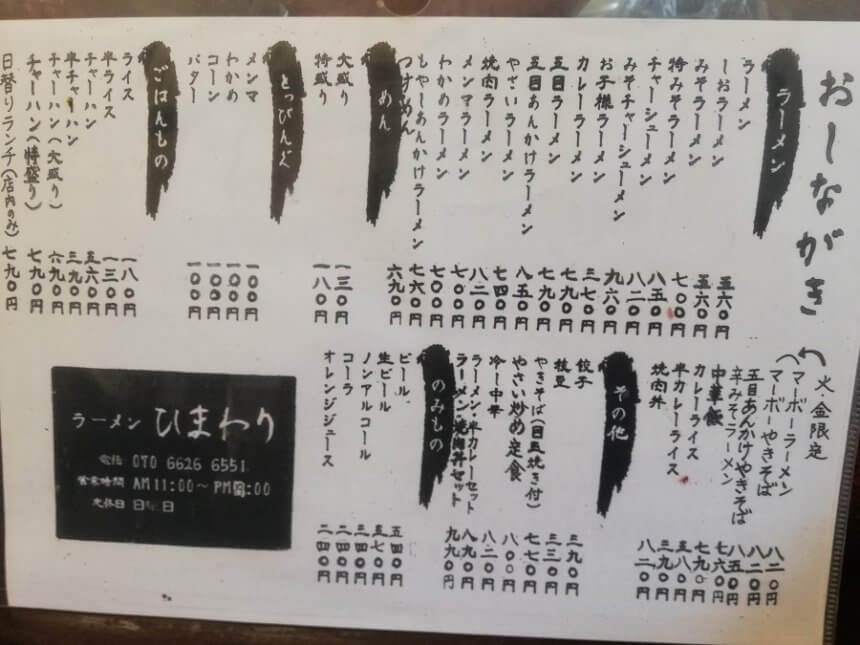 おしながき
ラーメン
ラーメン 五六〇円
しおラーメン 五六〇円
みそラーメン 七〇〇円
特みそラーメン 八五〇円
チャーシューメン 八二〇円
みそチャーシューメン 九六〇円
お子様ラーメン 三七〇円
カレーラーメン 七九〇円
五目ラーメン 七九〇円
五目あんかけラーメン 八五〇円
やさいラーメン 七四〇円
焼肉ラーメン 八二〇円
メンマラーメン 七〇〇円
わかめラーメン 七〇〇円
もやしあんかけラーメン 七六〇円
つけめん 六九〇円
めん
大盛り 一三〇円
特盛り 一八〇円
とっぴんぐ
メンマ 一〇〇円
わかめ 一〇〇円
コーン 一〇〇円
バター 一〇〇円
ごはんもの
ライス 一八〇円
半ライス 一三〇円
チャーハン 五六〇円
半チャーハン 三九〇円
チャーハン(大盛り) 六九〇円
チャーハン(特盛り) 七九〇円
日替りランチ(店内のみ) 七九〇円
火・金限定
マーボーラーメン 八二〇円
マーボーやきそば 八二〇円
五目あんかけやきそば 八五〇円
辛みそラーメン 七六〇円
中華飯 七九〇円
カレーライス 五八〇円
半カレーライス 三九〇円
焼肉丼 八二〇円
その他
餃子 三九〇円
枝豆 三三〇円
やきそば(目玉焼き付) 七七〇円
やさい炒め定食 八〇〇円
冷し中華 八二〇円
ラーメン・半カレーセット 八九〇円
ラーメン・焼肉丼セット 九九〇円
のみもの
ビール 五四〇円
生ビール 五七〇円
ノンアルコール 三四〇円
コーラ 二四〇円
オレンジジュース 二四〇円
ラーメン ひまわり
電話 070 6626 6551
営業時間 AM11:00〜PM:00
定休日 日曜日